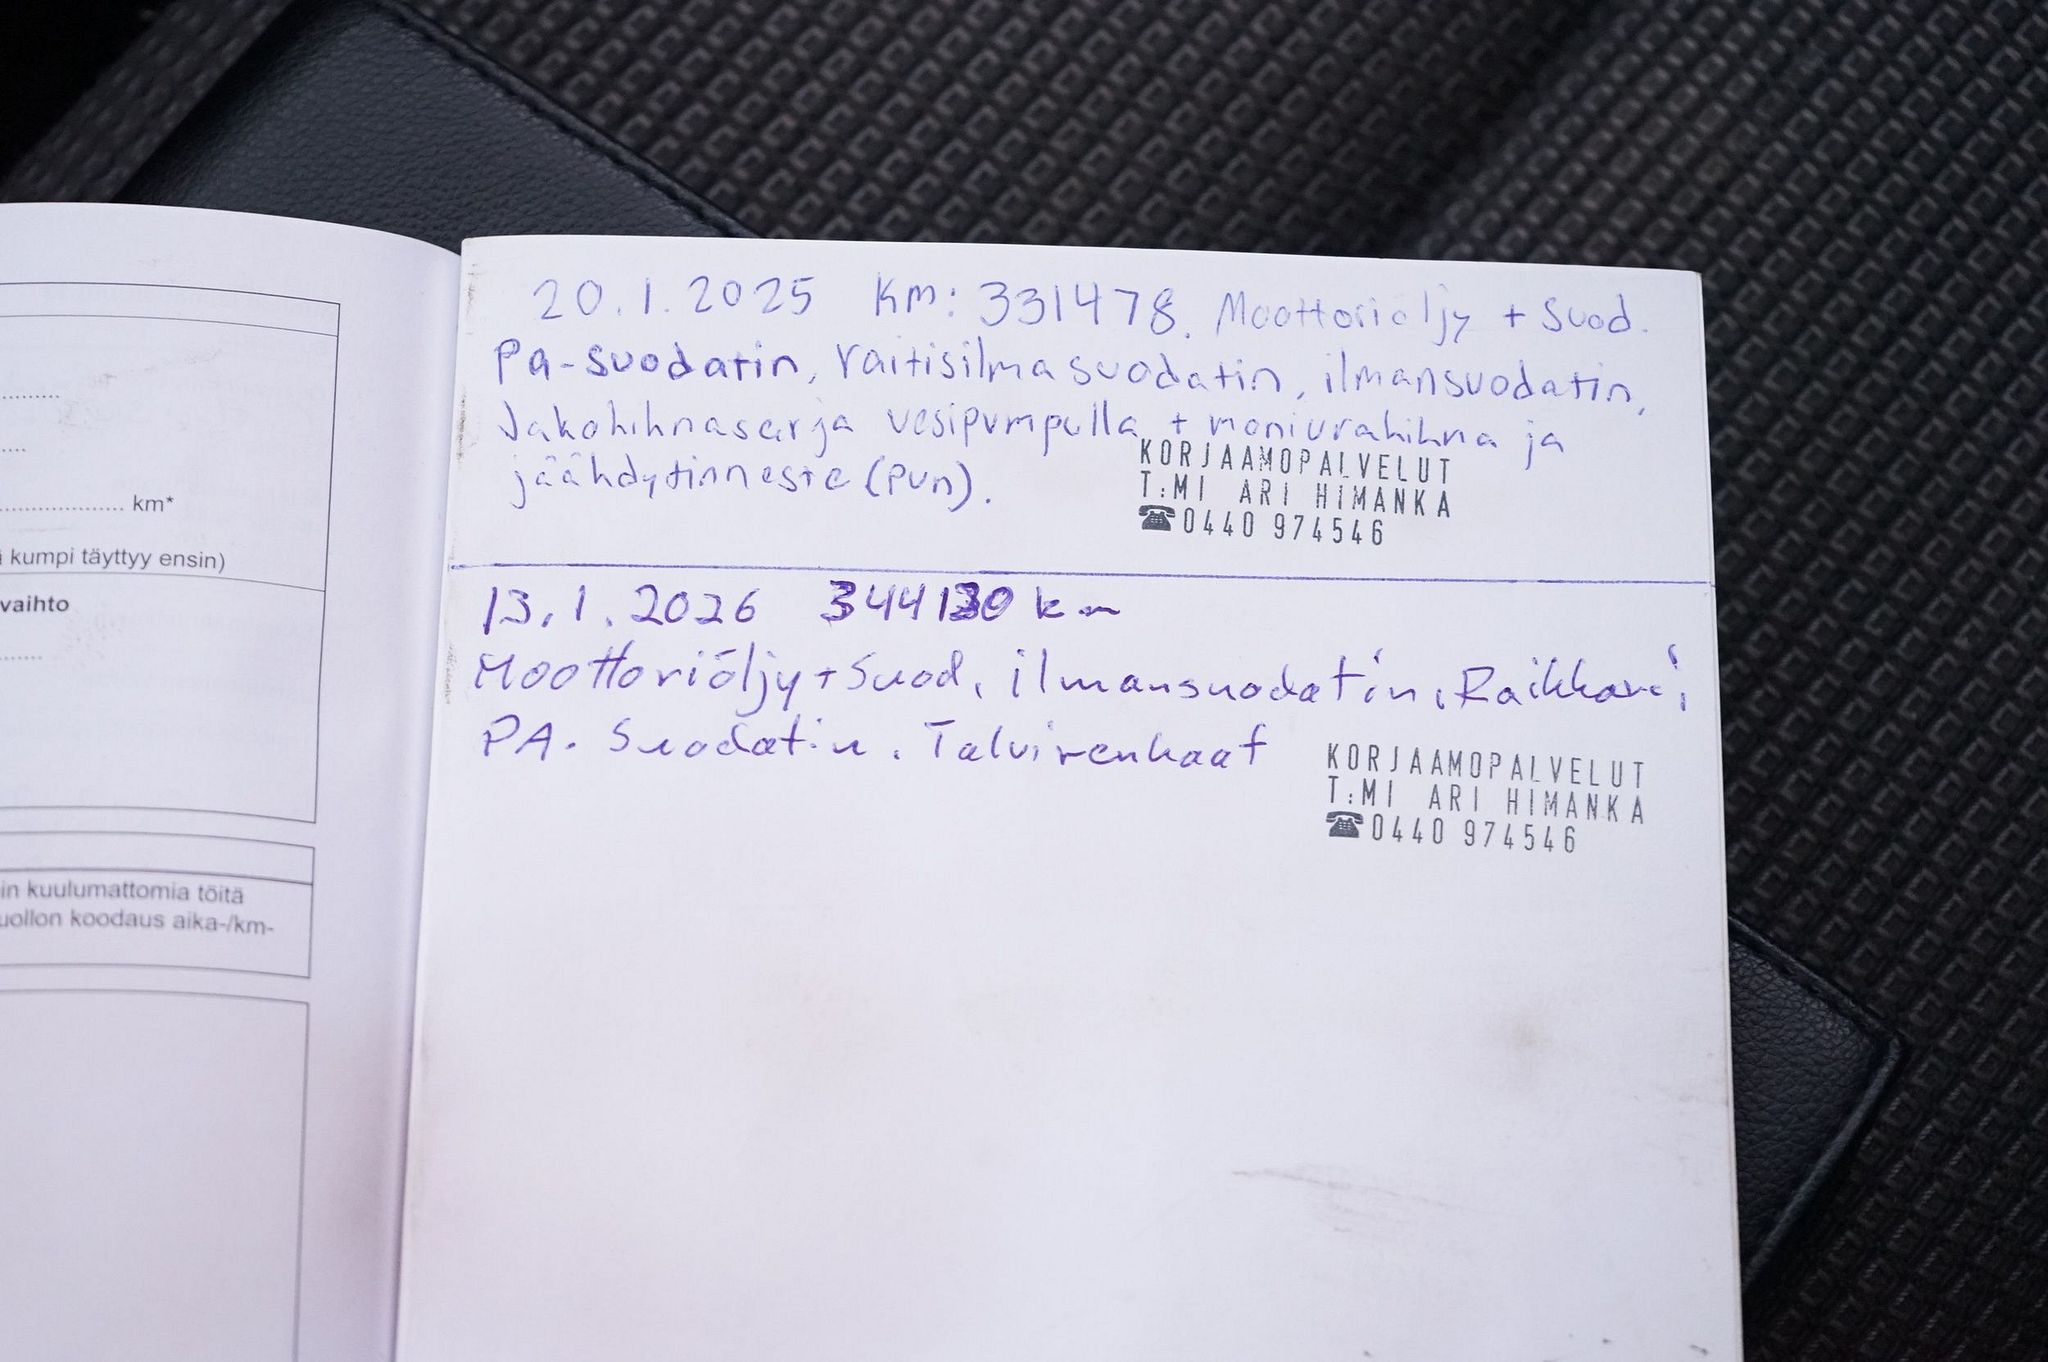 km*
kumpi täyttyy ensin)
vaihto
in kuulumattomia töitä
uollon koodaus aika-/km-
20.1.2025 KM: 331478. Moottoriöljy + Suod.
Pa-suodatin, raitisilmasuodatin, ilmansuodatin,
Jakohihnasarja vesipumpulla + moniurahihna ja
jäähdytinneste (pun).
KORJAAMOPALVELUT
T:MI ARI HIMANKA
☎0440 974546
13.1.2026 344130 km
Moottoriöljy + Suod, ilmansuodatin, Raikkari,
PA. Suodatin. Talvirenkaat
KORJAAMOPALVELUT
T:MI ARI HIMANKA
☎0440 974546